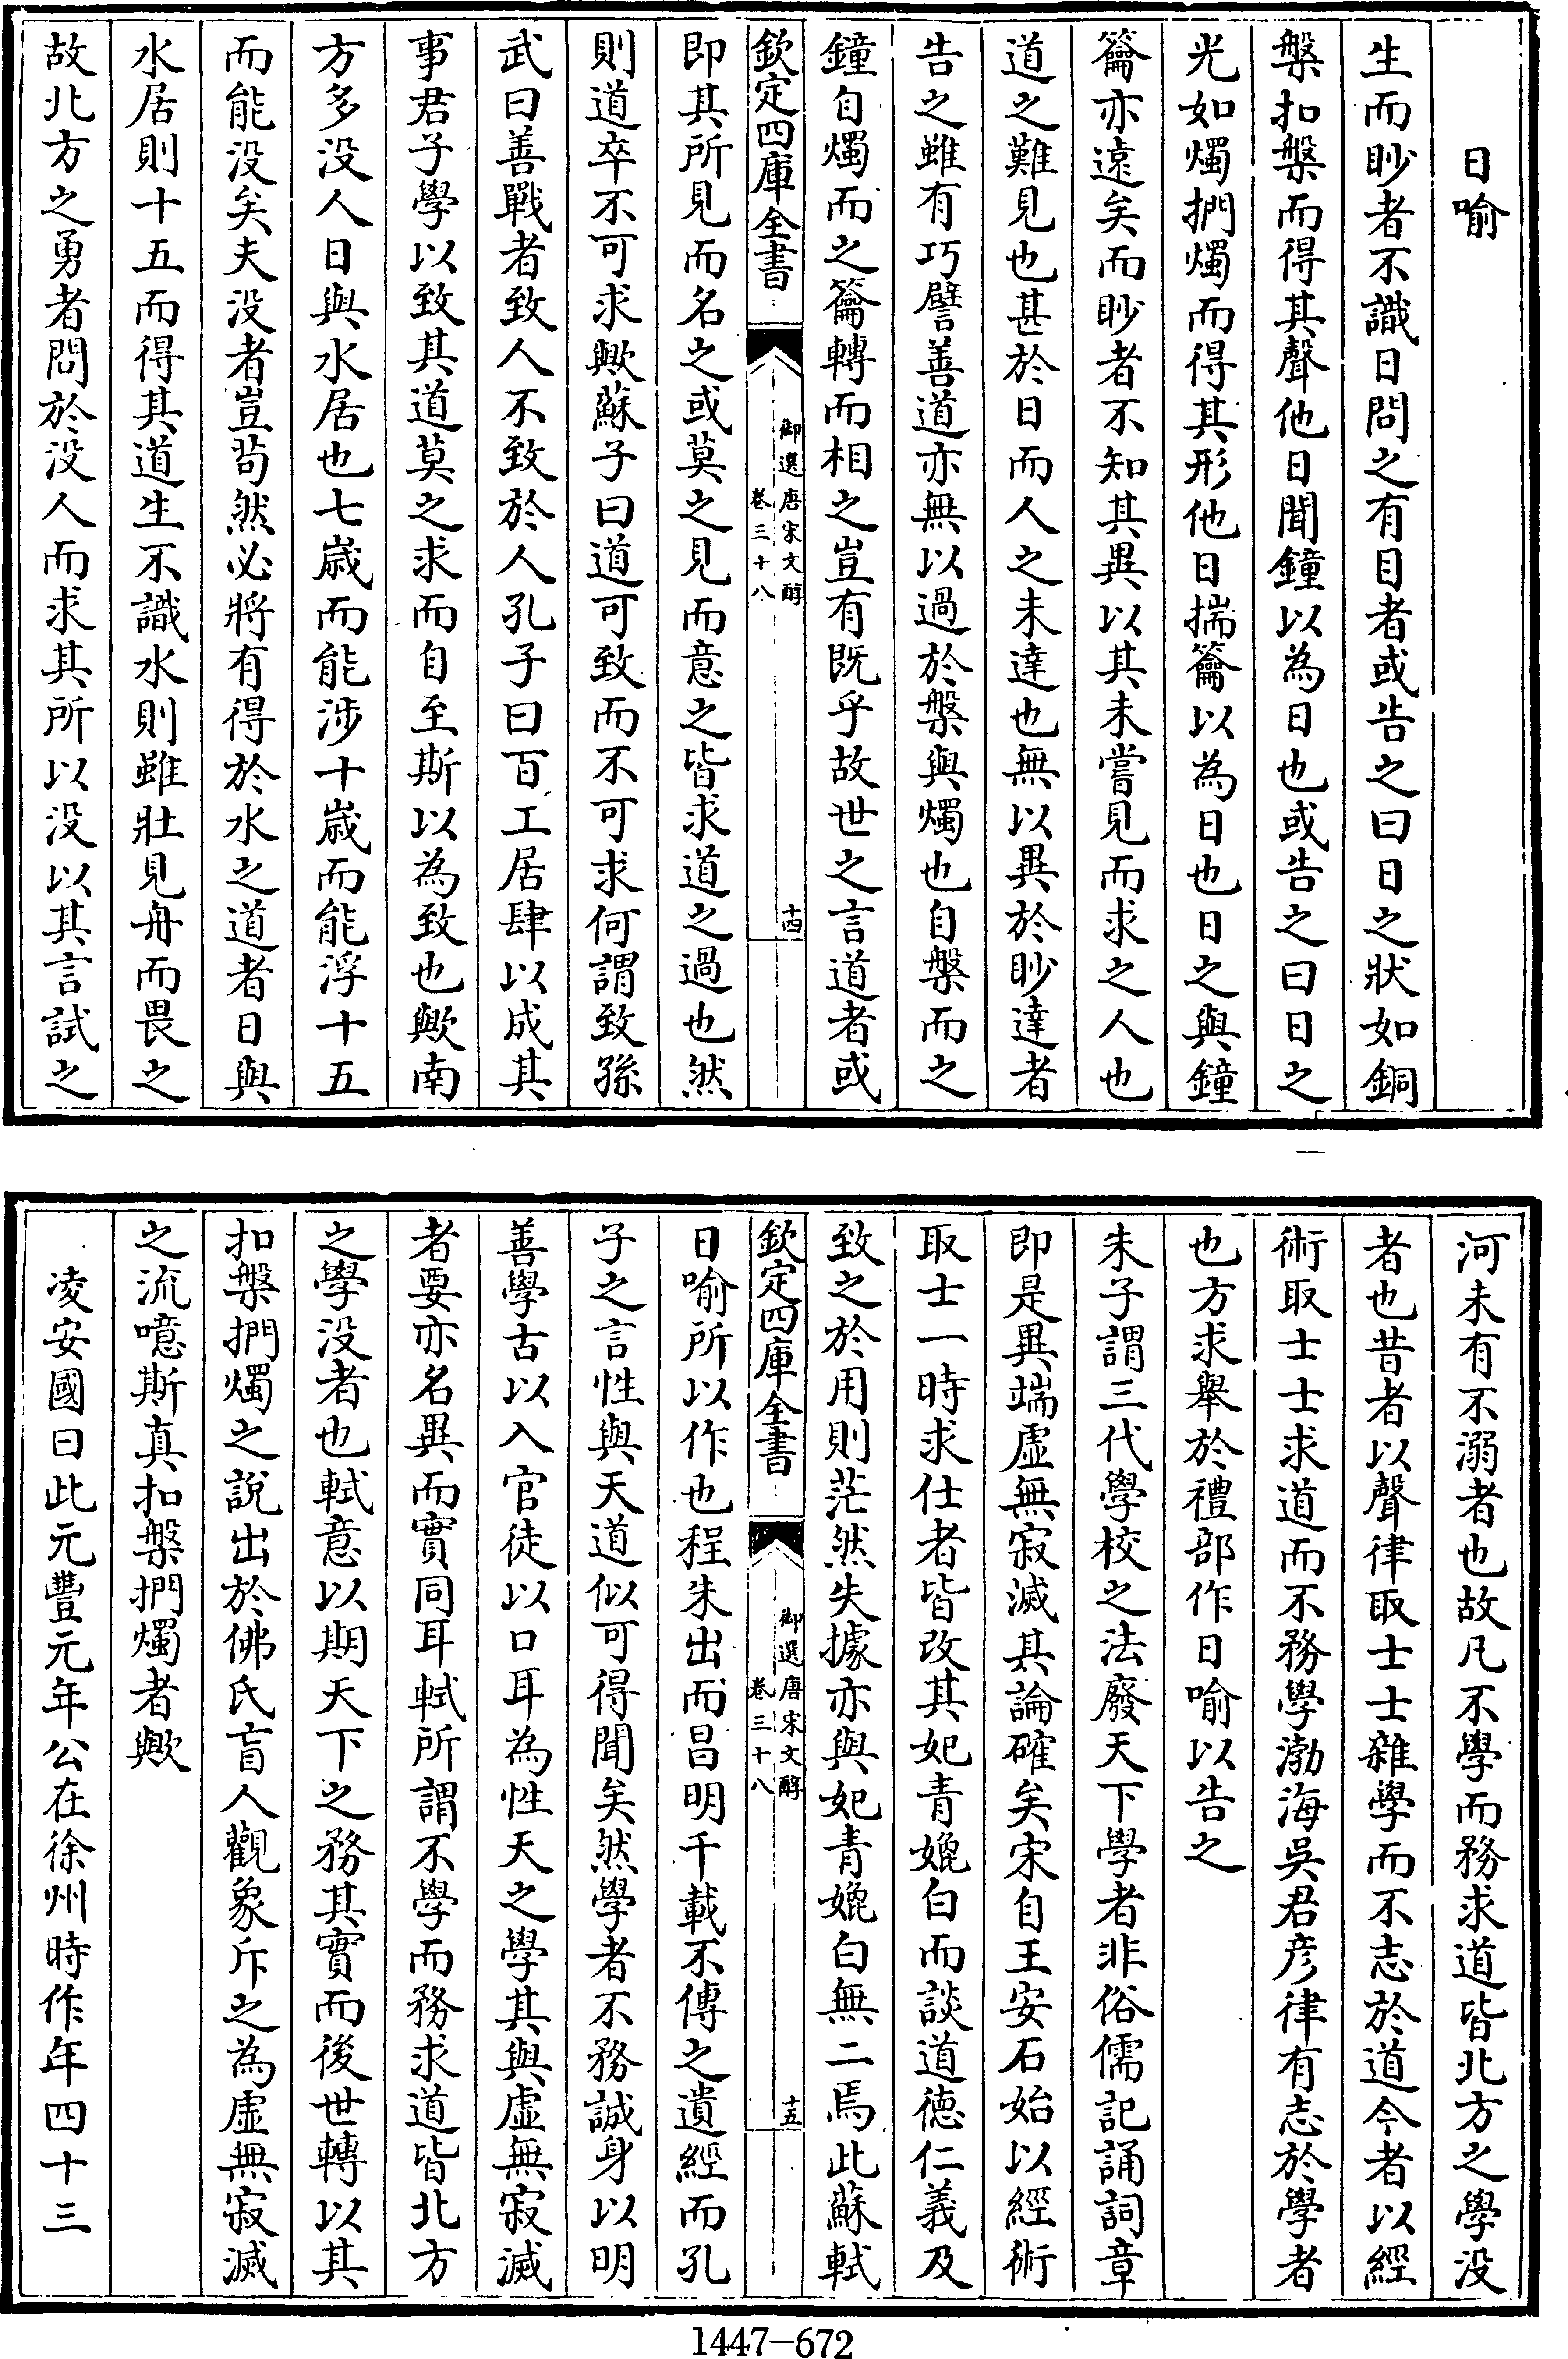 日喻
生而眇者不識日問之有目者或告之曰日之狀如銅
槃扣槃而得其聲他日聞鐘以為日也或告之曰日之
光如燭捫燭而得其形他日揣籥以為日也日之與鐘
籥亦遠矣而眇者不知其異以其未嘗見而求之人也
道之難見也甚於日而人之未達也無以異於眇達者
告之雖有巧譬善道亦無以過於槃與燭也自槃而之
鐘自燭而之籥轉而相之豈有既乎故世之言道者或
欽定四庫全書
御選唐宋文醇
卷三十八
十四
即其所見而名之或莫之見而意之皆求道之過也然
則道卒不可求歟蘇子曰道可致而不可求何謂致孫
武曰善戰者致人不致於人孔子曰百工居肆以成其
事君子學以致其道莫之求而自至斯以為致也歟南
方多没人日與水居也七歲而能涉十歲而能浮十五
而能没矣夫没者豈茍然必將有得於水之道者日與
水居則十五而得其道生不識水則雖壯見舟而畏之
故北方之勇者問於没人而求其所以没以其言試之
河未有不溺者也故凡不學而務求道皆北方之學没
者也昔者以聲律取士士雜學而不志於道今者以經
術取士士求道而不務學渤海吳君彦律有志於學者
也方求舉於禮部作日喻以告之
朱子謂三代學校之法廢天下學者非俗儒記誦詞章
即是異端虛無寂滅其論確矣宋自王安石始以經術
取士一時求仕者皆改其妃青媲白而談道德仁義及
致之於用則茫然失據亦與妃青媲白無二焉此蘇軾
欽定四庫全書
御選唐宋文醇
卷三十八
十五
日喻所以作也程朱出而昌明千載不傳之遺經而孔
子之言性與天道似可得聞矣然學者不務誠身以明
善學古以入官徒以口耳為性天之學其與虛無寂滅
者要亦名異而實同耳軾所謂不學而務求道皆北方
之學没者也軾意以期天下之務其實而後世轉以其
扣槃捫燭之說出於佛氏盲人觀象斥之為虛無寂滅
之流噫斯真扣槃捫燭者歟
凌安國曰此元豐元年公在徐州時作年四十三
1447-672